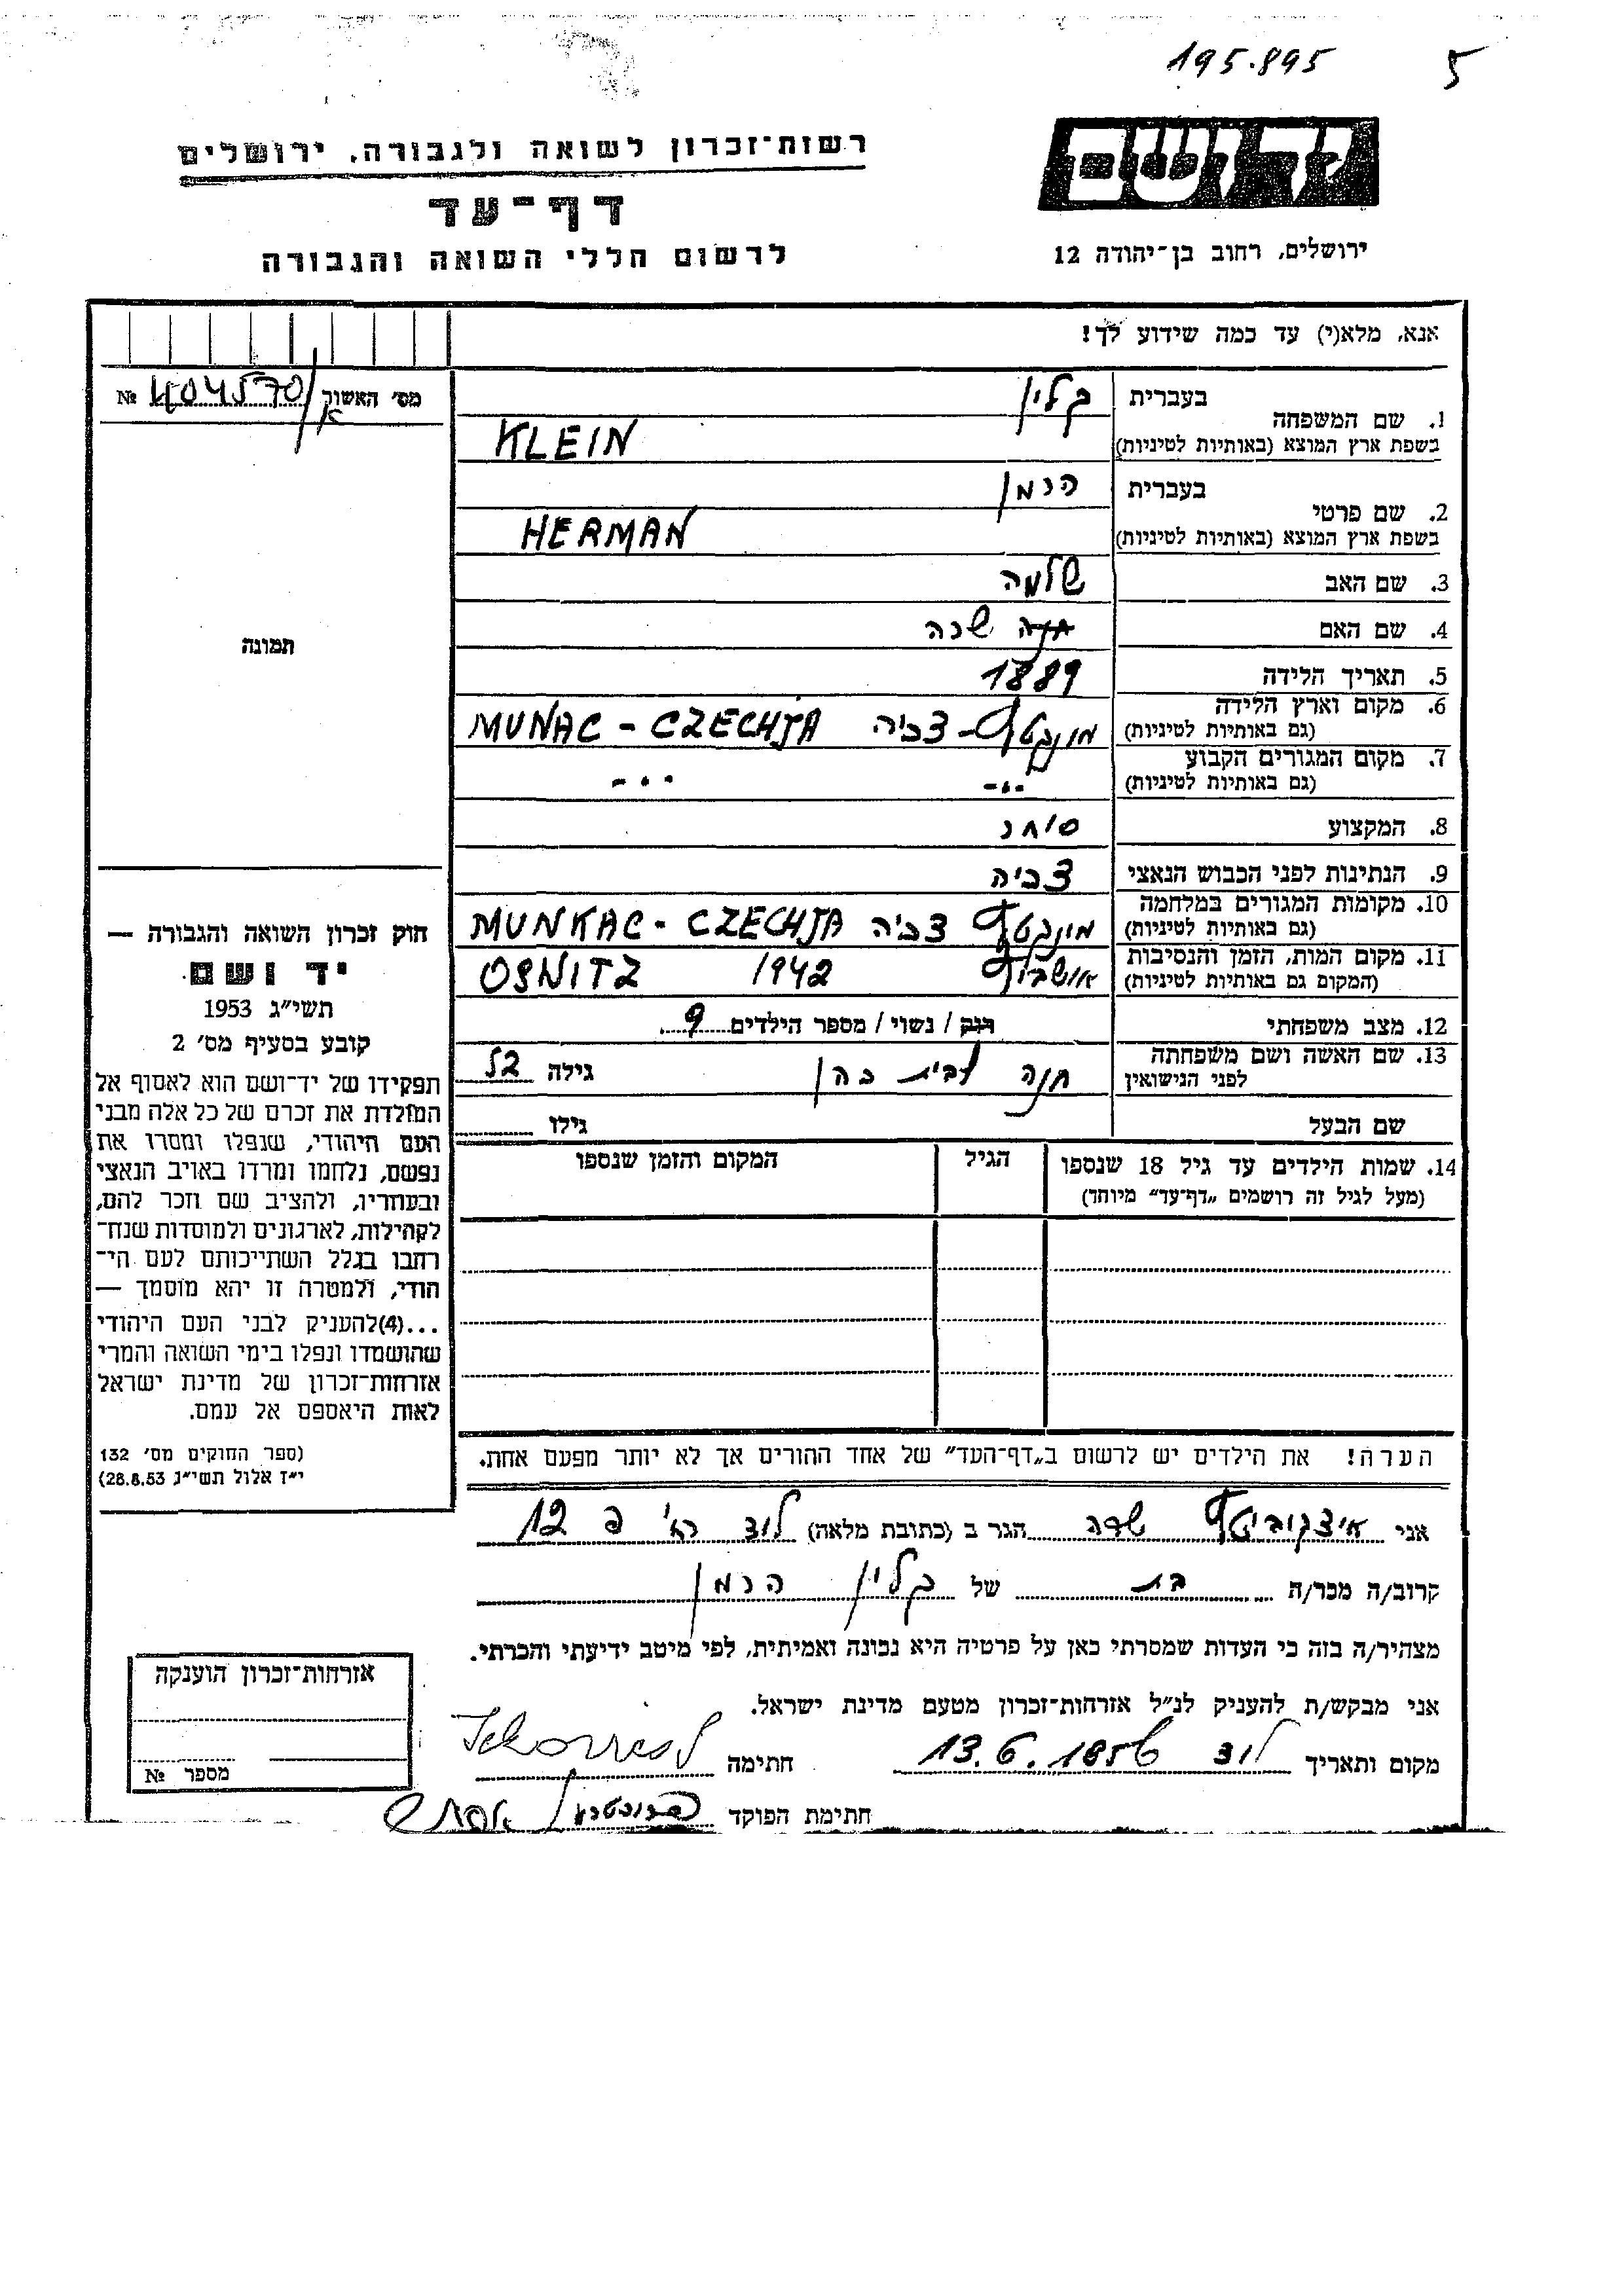 195.895 5
יד ושם
רשות־זכרון לשואה ולגבורה, ירושלים
דף־עד
לרשום חללי השואה והגבורה
ירושלים, רחוב בן־יהודה 12
אנא, מלא(י) עד כמה שידוע לך!
מס׳ האשור 404570/א №
תמונה
1. שם המשפחה בעברית קליין
בשפת ארץ המוצא (באותיות לטיניות) KLEIN
2. שם פרטי בעברית הרמן
בשפת ארץ המוצא (באותיות לטיניות) HERMAN
3. שם האב שלמה
4. שם האם חנה שרה
5. תאריך הלידה 1889
6. מקום וארץ הלידה
(גם באותיות לטיניות) מונקטש - צכיה MUNAC - CZECHJA
7. מקום המגורים הקבוע
(גם באותיות לטיניות) -..- -..-
8. המקצוע סוחר
9. הנתינות לפני הכבוש הנאצי צכיה
10. מקומות המגורים במלחמה
(גם באותיות לטיניות) מונקטש צכיה MUNKAC - CZECHJA
11. מקום המות, הזמן והנסיבות
(המקום גם באותיות לטיניות) אושביץ 1942 OSNITZ
12. מצב משפחתי רוק / נשוי / מספר הילדים 9
13. שם האשה ושם משפחתה
לפני הנישואין חנה לבית כהן גילה 52
שם הבעל גילו
14. שמות הילדים עד גיל 18 שנספו הגיל המקום והזמן שנספו
(מעל לגיל זה רושמים „דף־עד״ מיוחד)
חוק זכרון השואה והגבורה —
יד ושם
תשי״ג 1953
קובע בסעיף מס׳ 2
תפקידו של יד־ושם הוא לאסוף אל
המולדת את זכרם של כל אלה מבני
העם היהודי, שנפלו ומסרו את
נפשם, נלחמו ומרדו באויב הנאצי
ובעוזריו, ולהציב שם וזכר להם,
לקהילות, לארגונים ולמוסדות שנח־
רבו בגלל השתייכותם לעם הי־
הודי, ולמטרה זו יהא מוסמך —
...(4)להעניק לבני העם היהודי
שהושמדו ונפלו בימי השואה והמרי
אזרחות־זכרון של מדינת ישראל
לאות היאספם אל עמם.
(ספר החוקים מס׳ 132
י״ז אלול תשי״ג 28.8.53)
הערה! את הילדים יש לרשום ב„דף־העד״ של אחד ההורים אך לא יותר מפעם אחת.
אני איצקוביטש שרה הגר ב (כתובת מלאה) לוד 12
קרוב/ה מכר/ה בת של קליין הרמן
מצהיר/ה בזה כי העדות שמסרתי כאן על פרטיה היא נכונה ואמיתית, לפי מיטב ידיעתי והכרתי.
אני מבקש/ת להעניק לנ״ל אזרחות־זכרון מטעם מדינת ישראל.
מקום ותאריך לוד 13.6.1956 חתימה
חתימת הפוקד
אזרחות־זכרון הוענקה
מספר №